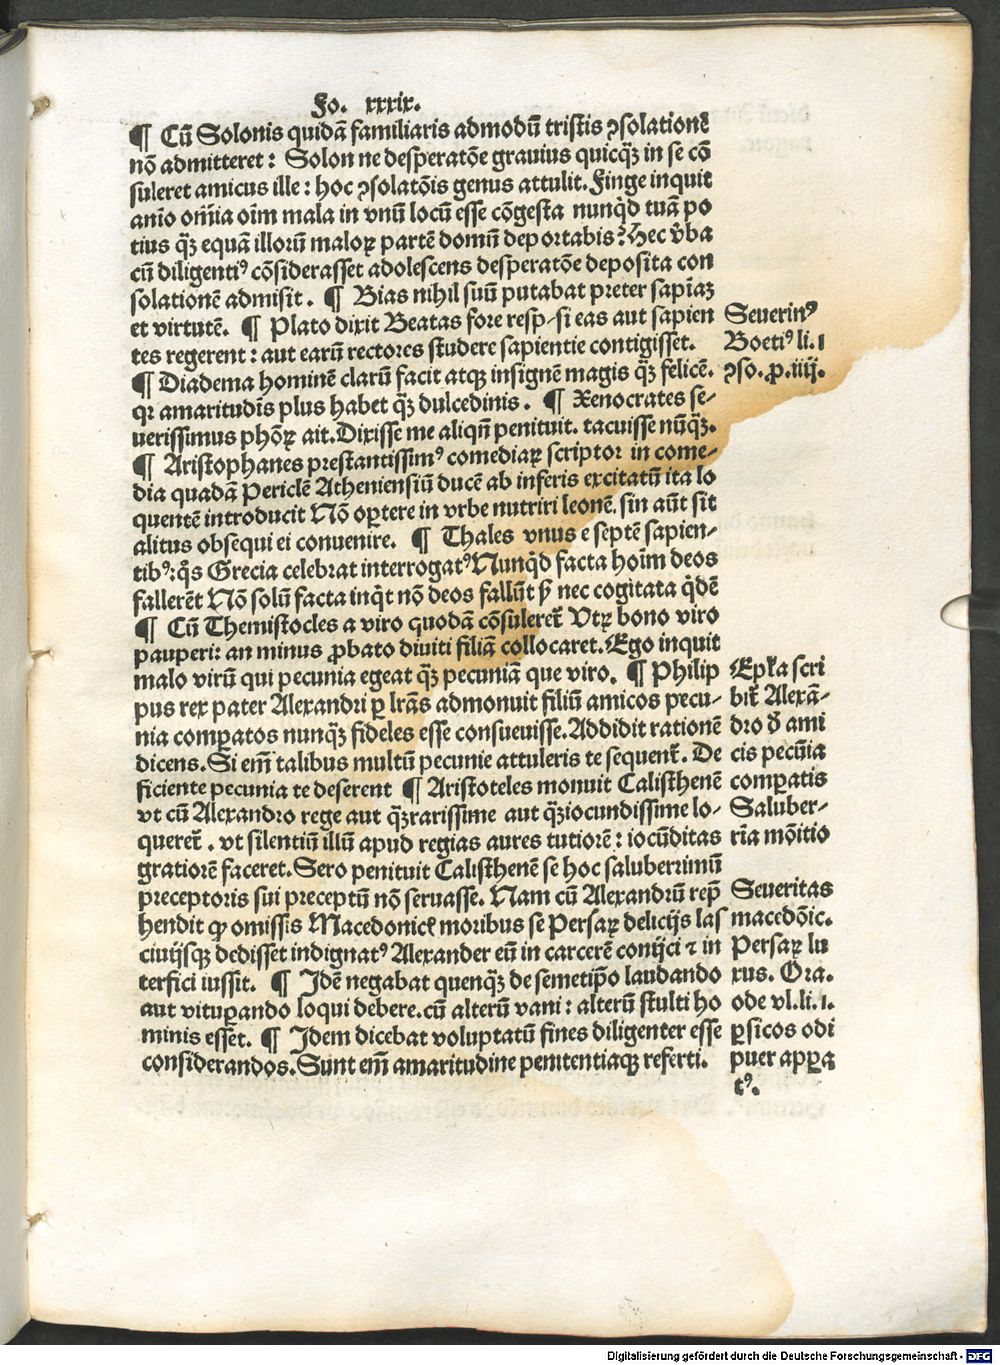 Fo. xxxix.
¶ Cū Solonis quidā familiaris admodū tristis ꝯsolationē
nō admitteret : Solon ne desperatōe grauius quicqꝫ̄ in se cō
suleret amicus ille : hoc ꝯsolatōis genus attulit. Finge inquit
anīo om̄ia oīm mala in vnū locū esse cōgesta nunqͥd tuā po
tius qꝫ̄ equā illorū maloꝝ partē domū deportabis? Hec v̄ba
cū diligentiꝰ cōsiderasset adolescens desperatōe deposita con
solationē admisit . ¶ Bias nihil suū putabat preter sapīaꝫ
et virtutē. ¶ Plato dixit Beatas fore resp- si eas aut sapien
tes regerent : aut earū rectores studere sapientie contigisset.
¶ Diadema hominē clarū facit atqꝫ insignē magis qꝫ̄ felicē.
qꝛ amaritudīs plus habet qꝫ̄ dulcedinis . ¶ Xenocrates se-
uerissimus phōꝝ ait. Dixisse me aliqn̄ penituit. tacuisse nūqꝫ̄.
¶ Aristophanes prestantissimꝰ comediaꝝ scriptor in come-
dia quadā Periclē Atheniensiū ducē ab inferis excitatū ita lo
quentē introducit Nō oꝑtere in vrbe nutriri leonē. sin aūt sit
alitus obsequi ei conuenire. ¶ Thales vnus e septē sapien-
tibꝰ: qͦs Grecia celebrat interrogatꝰ Nunqͥd facta hoīm deos
fallerēt Nō solū facta inqͥt nō deos fallūt sꝫ nec cogitata qͥdē
¶ Cū Themistocles a viro quodā cōsuleret̄ Vtꝝ bono viro
pauperi: an minus ꝓbato diuiti filiā collocaret. Ego inquit
malo virū qui pecunia egeat qꝫ̄ pecuniā que viro. ¶ Philip
pus rex pater Alexandri ꝑ lr̄as admonuit filiū amicos pecu-
nia comꝑatos nunqꝫ̄ fideles esse consueuisse. Addidit rationē
dicens. Si em̄ talibus multū pecunie attuleris te sequent̄. De
ficiente pecunia te deserent ¶ Aristoteles monuit Calisthenē
vt cū Alexandro rege aut qꝫ̄rarissime aut qꝫ̄iocundissime lo-
queret̄ . vt silentiū illū apud regias aures tutiorē : iocūditas
gratiorē faceret. Sero penituit Calisthenē se hoc saluberrimū
preceptoris sui preceptū nō seruasse. Nam cū Alexandrū rep̄
hendit ꝙ omissis Macedonicꝭ moribus se Persaꝝ delicijs las
ciuijsqꝫ dedisset indignatꝰ Alexander eū in carcerē conijci ⁊ in
terfici iussit. ¶ Idē negabat quenqꝫ̄ de semetip̄o laudando
aut vituꝑando loqui debere. cū alterū vani : alterū stulti ho
minis esset. ¶ Idem dicebat voluptatū fines diligenter esse
considerandos. Sunt em̄ amaritudine penitentiaqꝫ referti.
Seuerinꝰ
Boetiꝰ li. 1
ꝯso. ꝓ. iiij.
Epl̄a scri
bit̄ Alexā-
dro d̄ ami
cis pecūia
comꝑatis
Saluber-
rīa mōitio
Seueritas
macedōic.
Persaꝝ lu
xus. Ora.
ode vl. li. 1.
ꝑsicos odi
puer appꝑa
tꝰ.